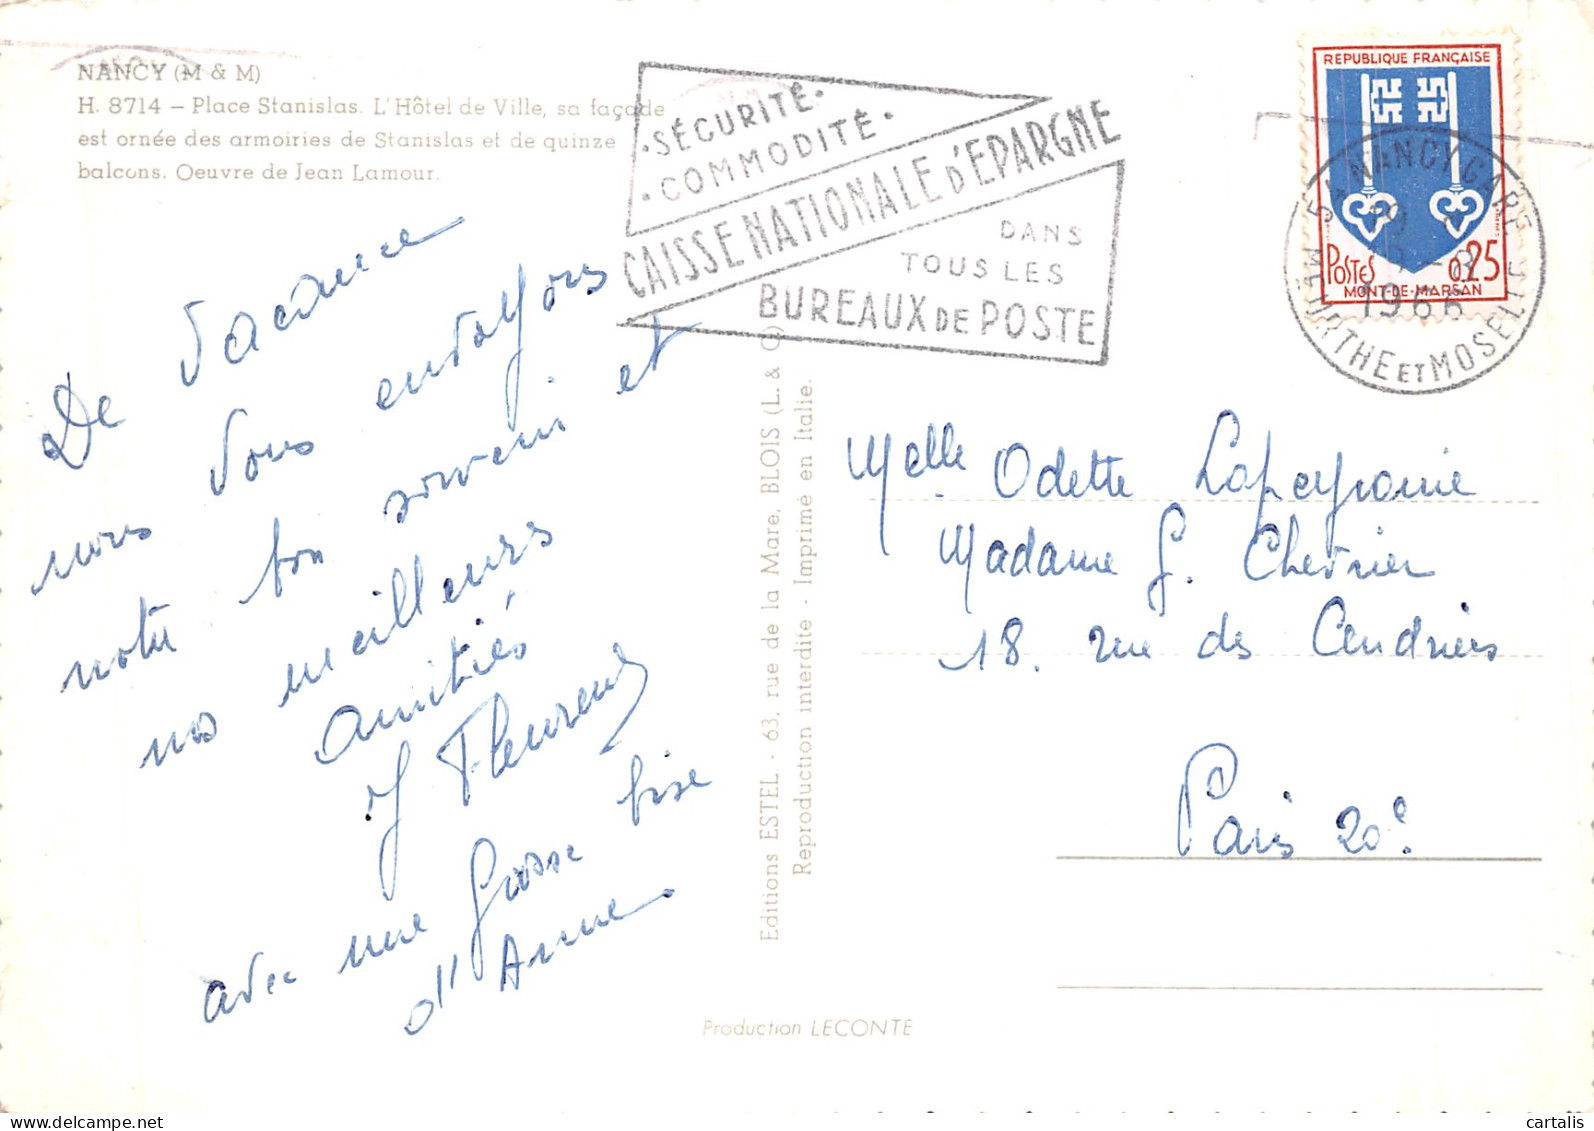 NANCY (M & M)
H. 8714 – Place Stanislas. L'Hôtel de Ville, sa façade
est ornée des armoiries de Stanislas et de quinze
balcons. Oeuvre de Jean Lamour.
• SÉCURITÉ •
• COMMODITÉ •
CAISSE NATIONALE D'EPARGNE
DANS
TOUS LES
BUREAUX DE POSTE
REPUBLIQUE FRANÇAISE
POSTES 0,25
MONT-DE-MARSAN
54 NANCY GARE
1966
MEURTHE ET MOSELLE
De Vacance
nous Vous envoyons
notre bon souvenir et
nos meilleurs
amitiés
avec une Grosse bise
d'Anne
Editions ESTEL - 63, rue de la Mare, BLOIS (L. & C)
Reproduction interdite - Imprimé en Italie.
Melle Odette Lapeyronie
Madame G. Chevrier
18. rue des Cendriers
Paris 20e
Production LECONTE
cartalis
www.delcampe.net